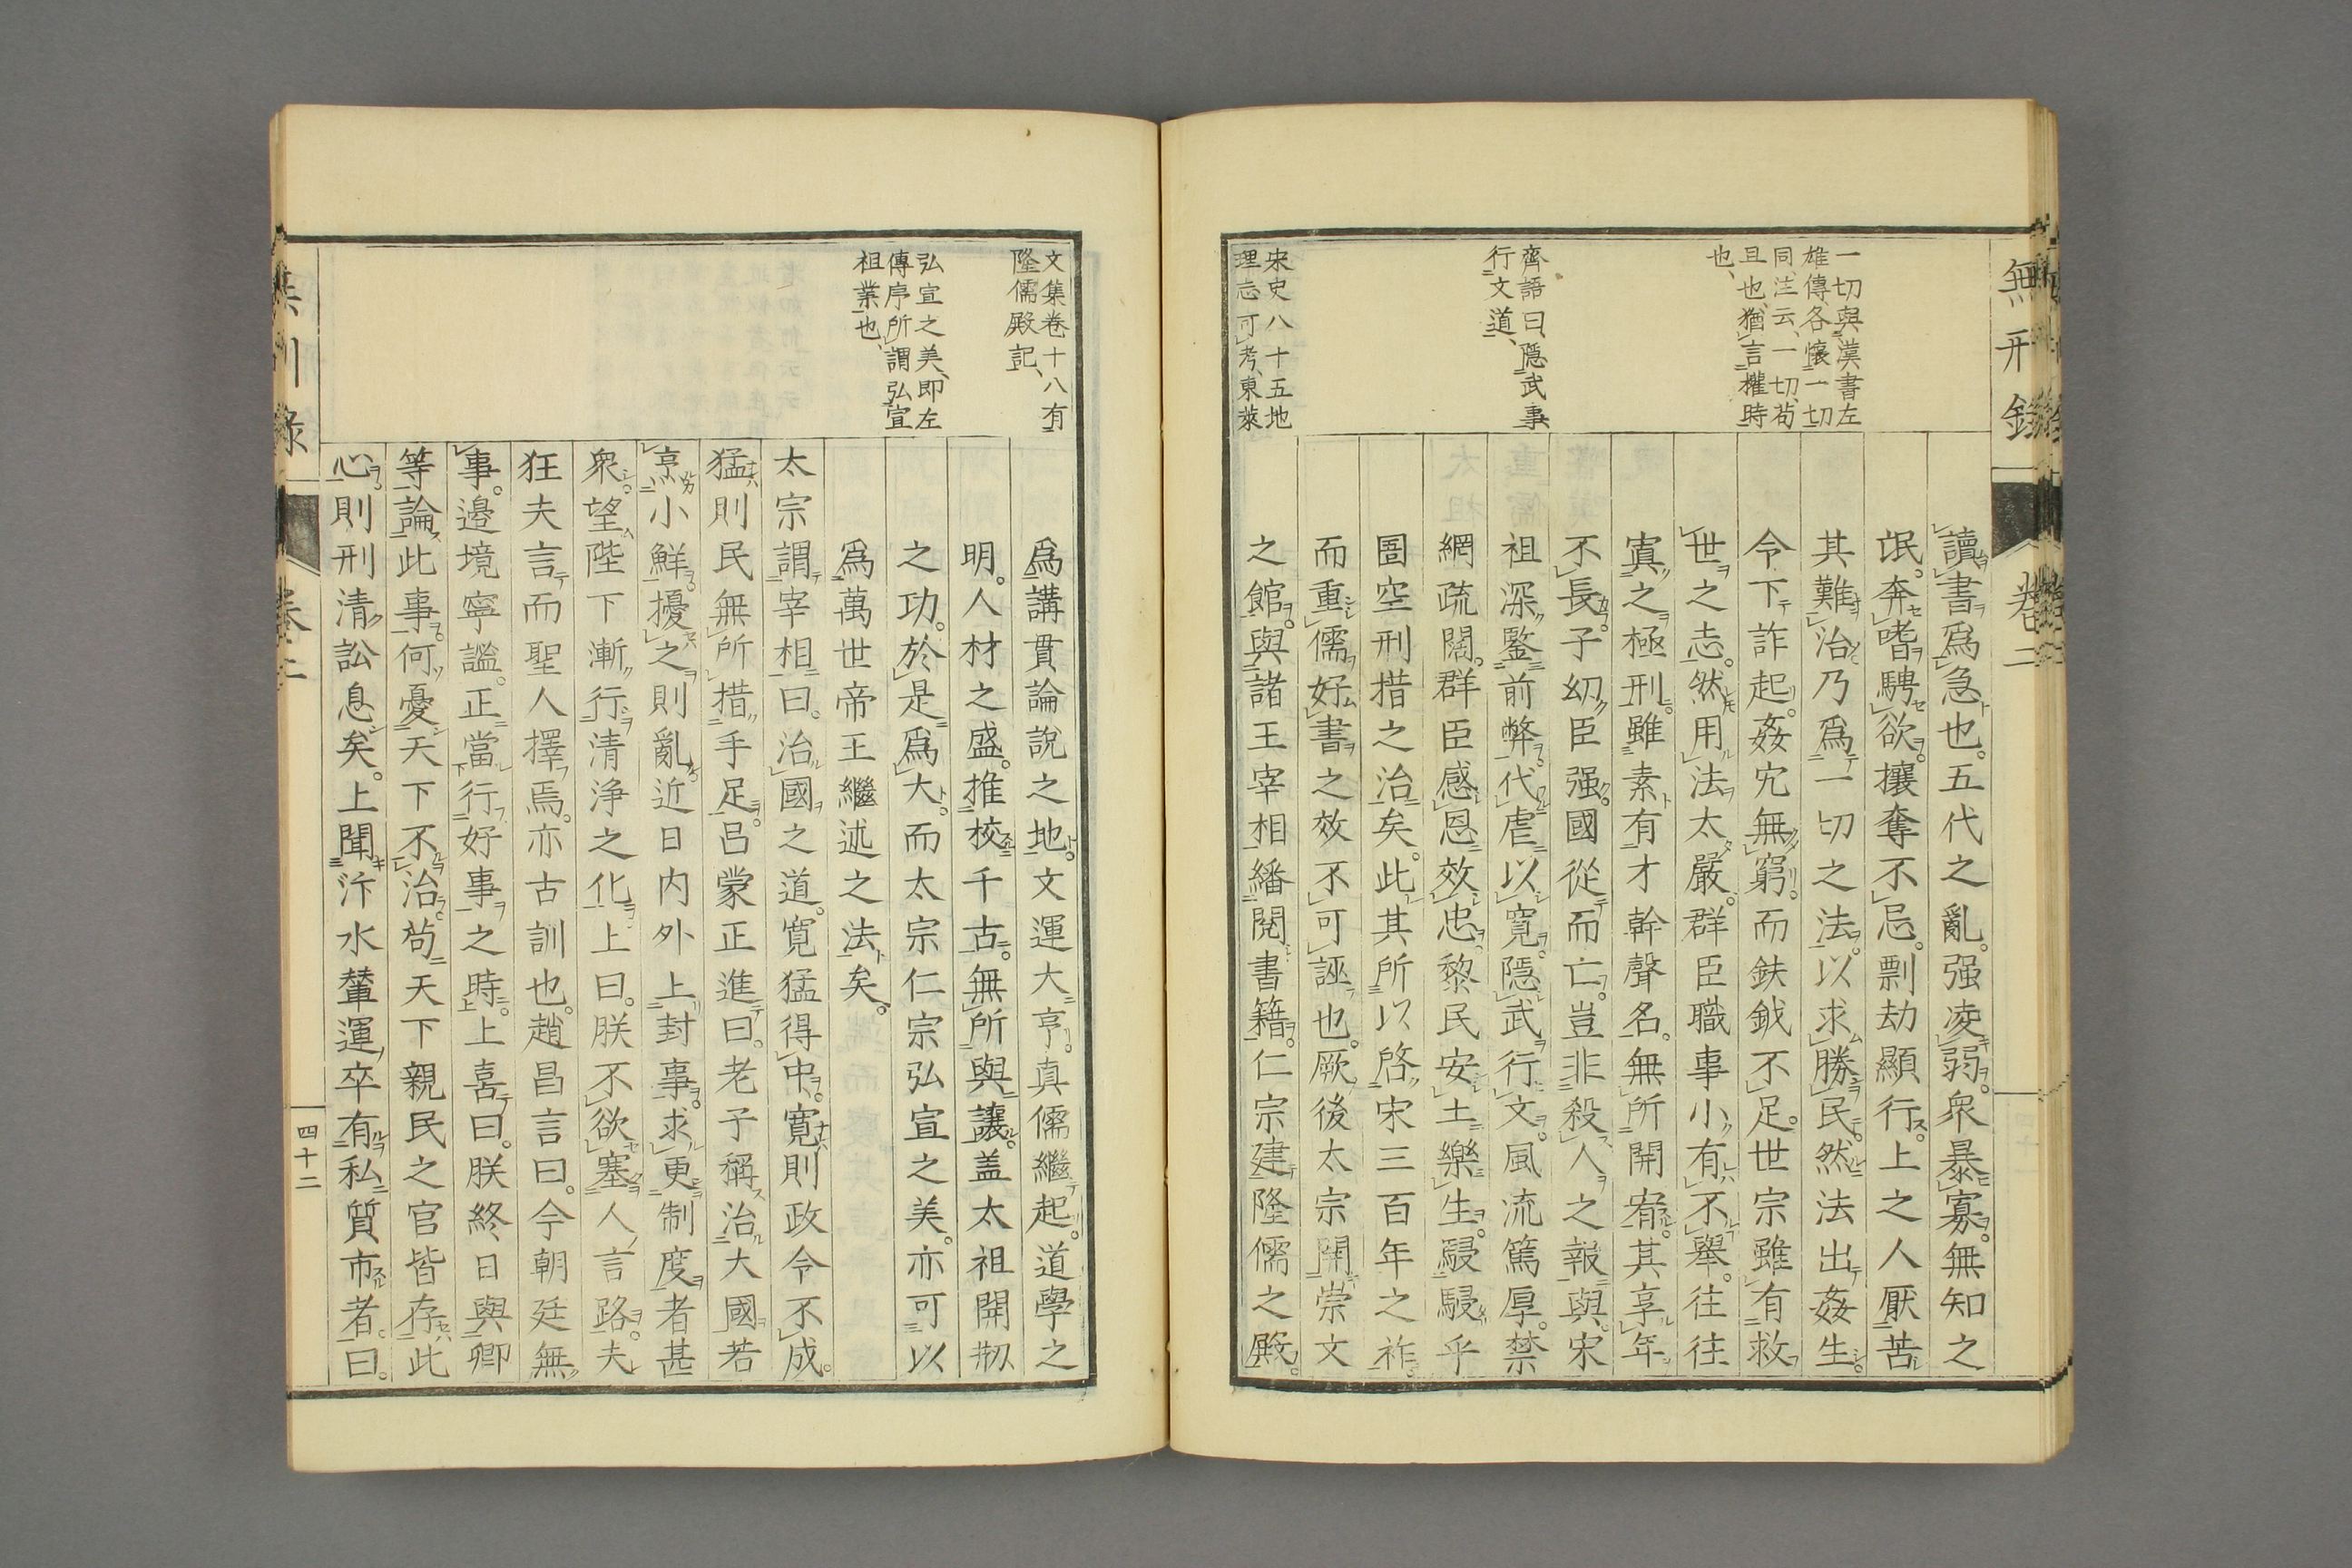 無刑錄
卷二
一切與漢書左
雄傳各懷一切
同、注云、一切、苟
且也、猶言權時
也、
齊語曰、隱武事
行文道、
宋史八十五地
理志可考、東萊
讀書爲急也。五代之亂。强凌弱。衆暴寡。無知之
氓。奔嗜騁欲。攘奪不忌。剽劫顯行。上之人厭苦
其難治乃爲一切之法。以求勝民。然法出姦生。
令下詐起。姦宄無窮。而鈇鉞不足。世宗雖有救
世之志。然用法太嚴。群臣職事小有不擧。往往
寘之極刑。雖素有才幹聲名。無所開宥。其享年
不長。子幼臣强。國從而亡。豈非殺人之報與。宋
祖深鑒前弊。代虐以寬。隱武行文。風流篤厚。禁
網疏闊。群臣感恩效忠。黎民安土樂生。駸駸乎
圄空刑措之治矣。此其所以啓宋三百年之祚。
而重儒好書之效不可誣也。厥後太宗開崇文
之館。與諸王宰相繙閱書籍。仁宗建隆儒之殿。
文集卷十八有
隆儒殿記、
弘宣之美、即左
傳序所謂弘宣
祖業也、
爲講貫論說之地。文運大亨。真儒繼起。道學之
明。人材之盛。推校千古。無所與讓。盖太祖開剏
之功。於是爲大。而太宗仁宗弘宣之美。亦可以
爲萬世帝王繼述之法矣。
太宗謂宰相曰。治國之道。寬猛得中。寬則政令不成。
猛則民無所措手足。呂蒙正進曰。老子稱治大國若
烹小鮮。擾之則亂。近日內外上封事。求更制度者甚
衆。望陛下漸行清浄之化。上曰。朕不欲塞人言路。夫
狂夫言而聖人擇焉。亦古訓也。趙昌言曰。今朝廷無
事。邉境寧謐。正當行好事之時。上喜曰。朕終日與卿
等論此事。何憂天下不治。苟天下親民之官皆存此
心。則刑清訟息矣。上聞汴水輦運卒有私質市者。曰。
無刑錄
卷二
四十二